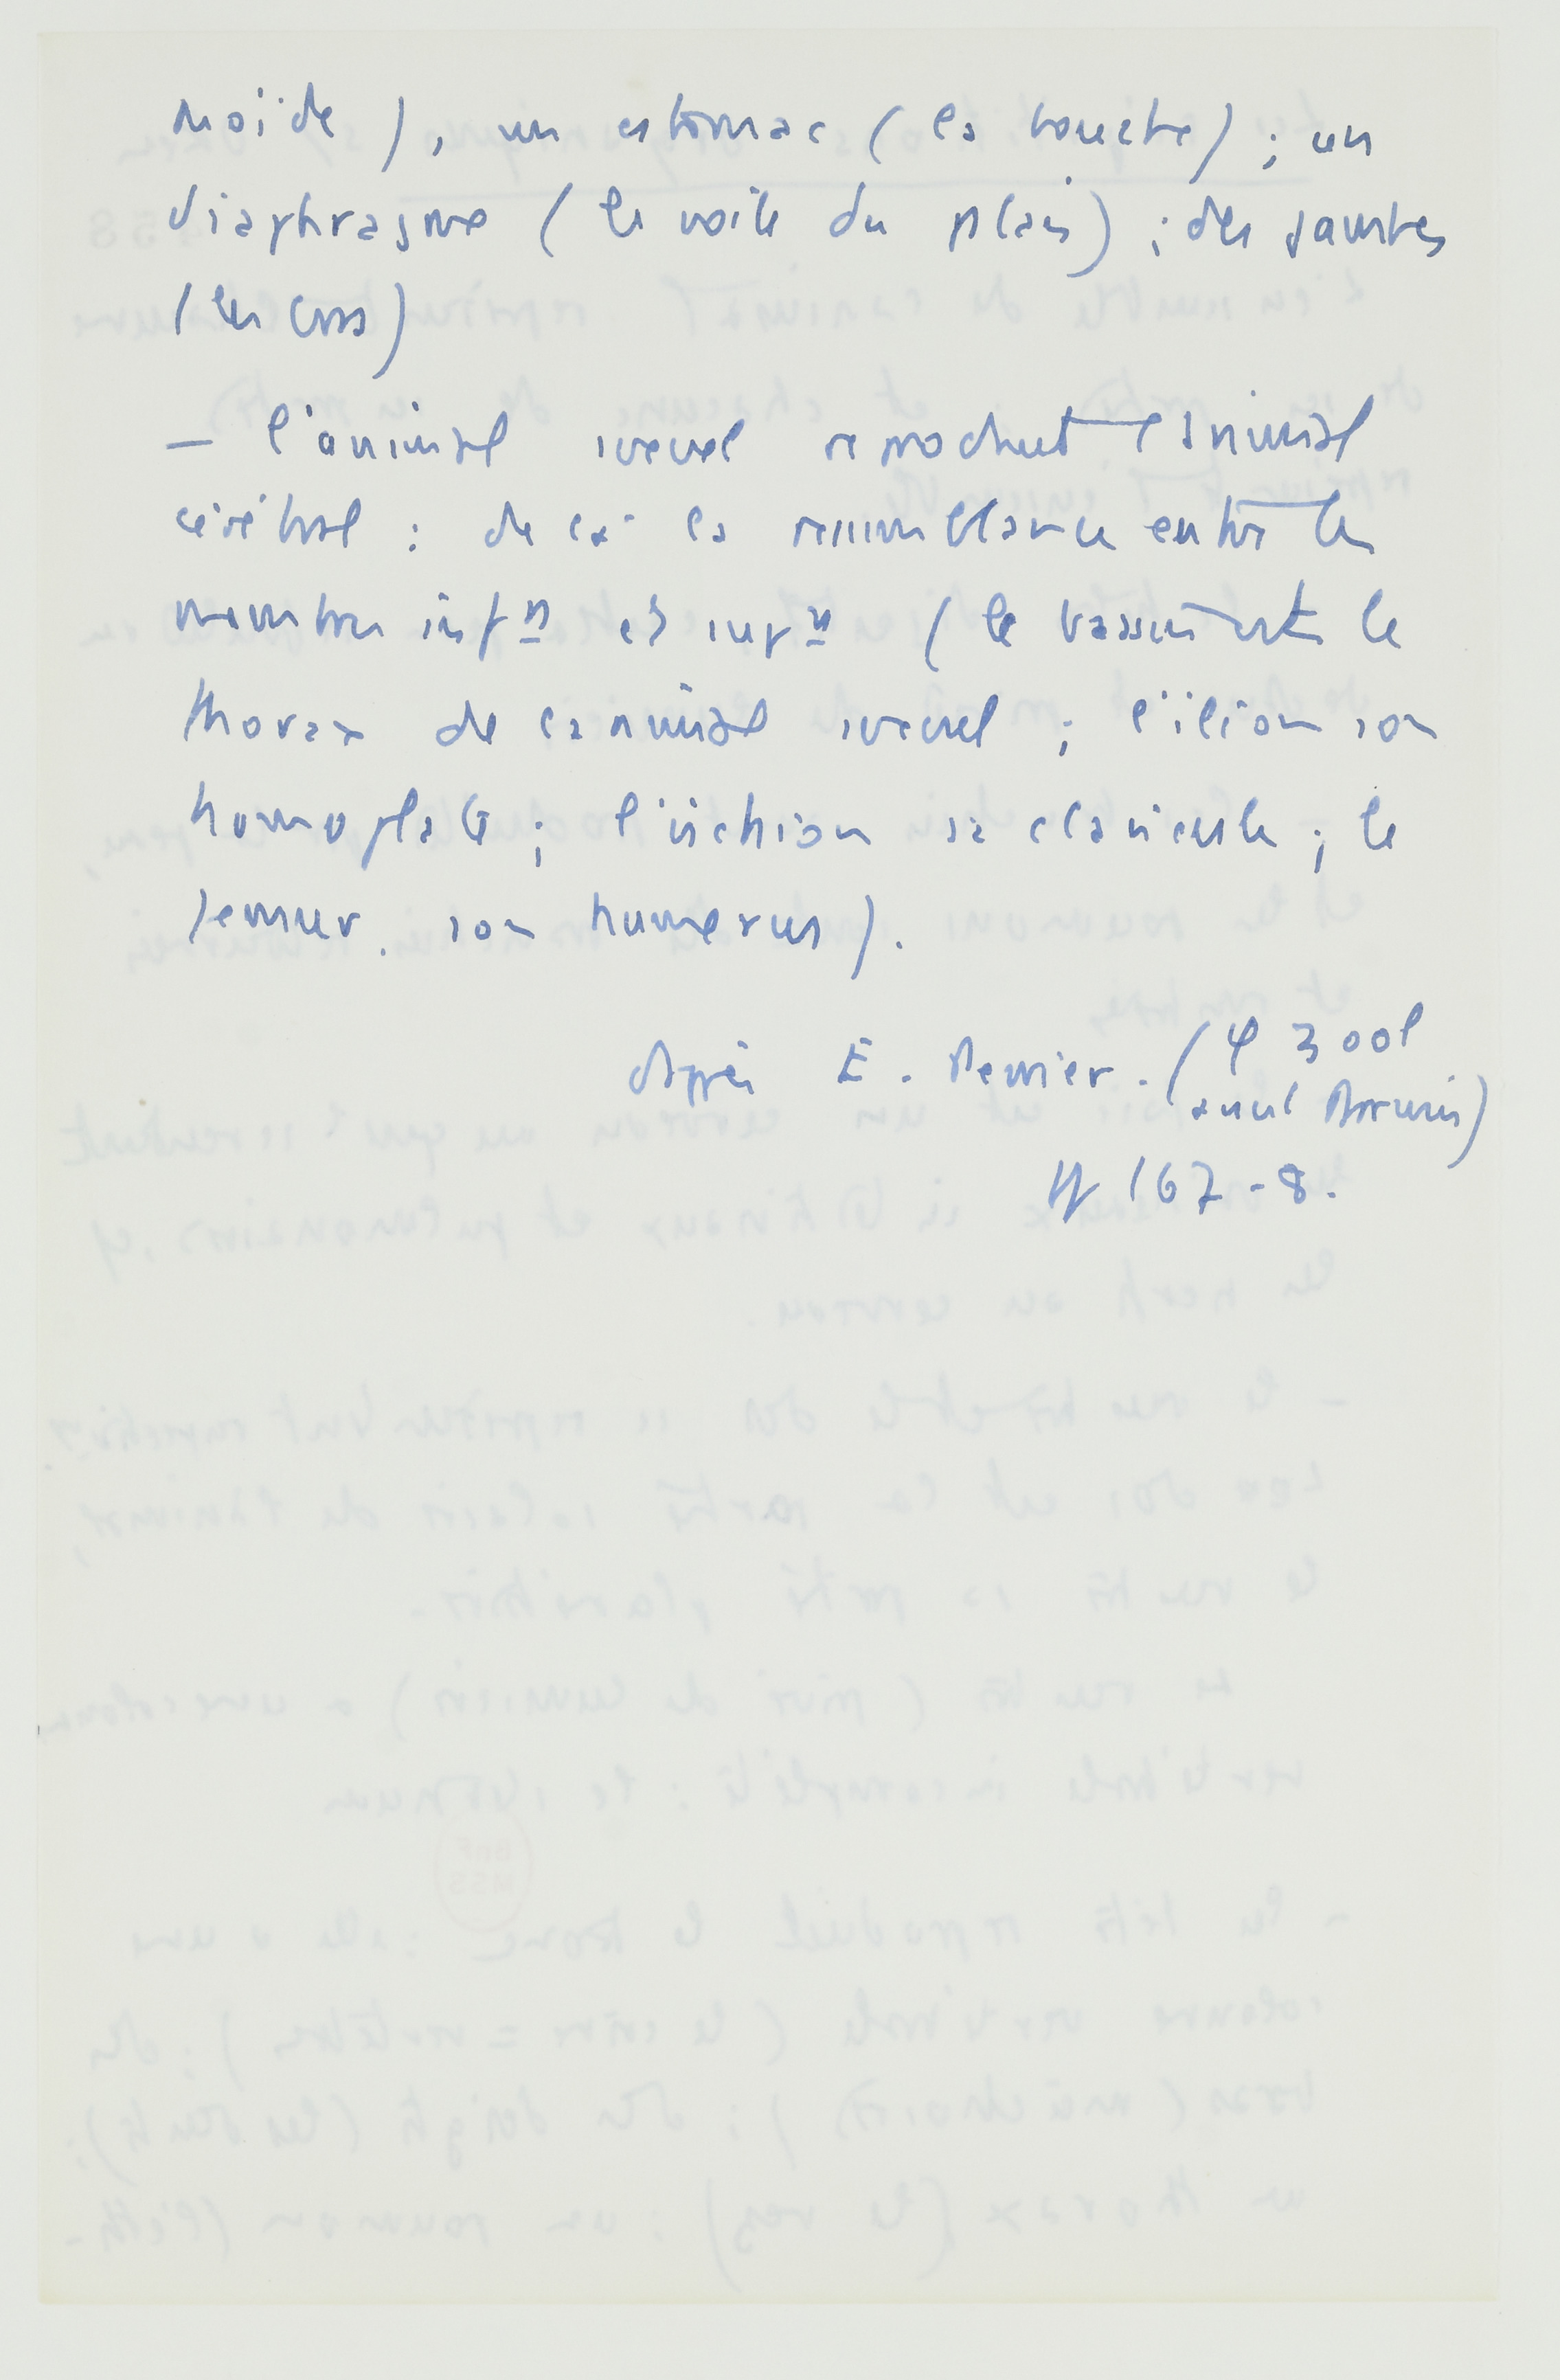 moïde), un estomac (la bouche) ; un
diaphragme (le voile du palais) ; des jambes
(les bras)
— l'animal sexuel reproduit l'animal
cérébral : de là la ressemblance entre les
membres infrs et suprs (le bassin est le
thorax de l'animal sexuel ; l'ilion son
homoplate ; l'ischion sa clavicule ; le
femur. son humerus).
Après E. Perrier. (φ zool
avant Darwin)
pp 167-8.